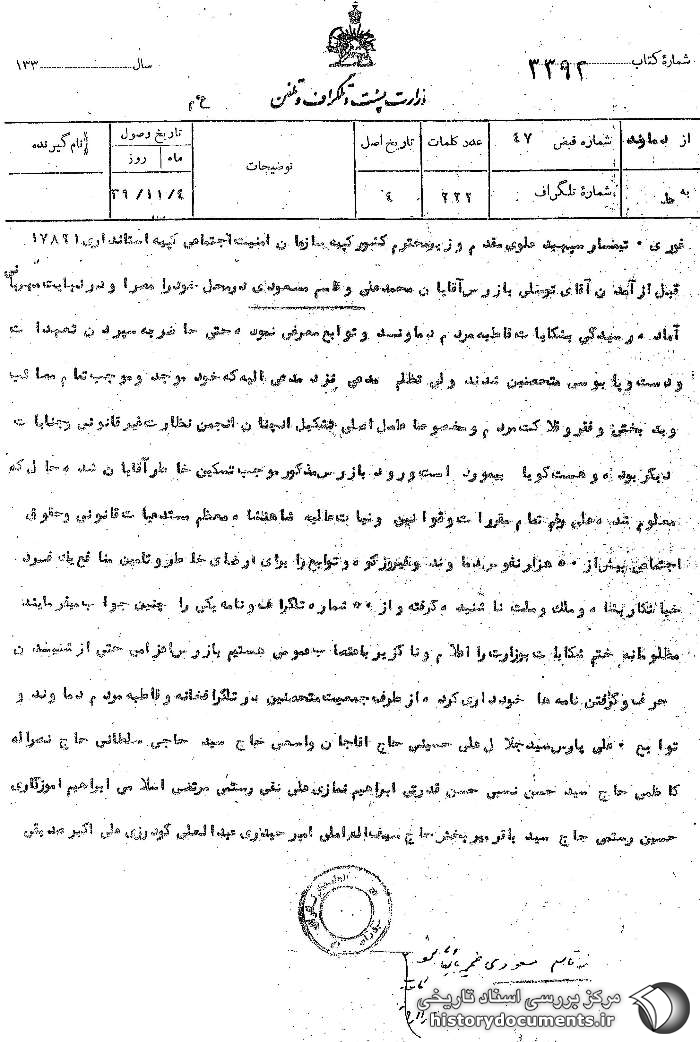 شمارهٔ کتاب ۳۳۹۲
سال ۱۳۳
وزارت پست و تلگراف و تلفن
از دماوند
شماره قبض ۴۷
عدد کلمات
تاریخ اصل
توضیحات
تاریخ وصول
ماه روز
نام گیرنده
به
شمارهٔ تلگراف
۲۲۲
۴
۳۹/۱۱/۴
فوری ۰ تیمسار سپهبد علوی مقدم وزیر محترم کشور کپیه سازمان امنیت اجتماعی کپیه استانداری ۱۷۸۲۱
قبل از آمدن آقای توسلی بازرس آقایان محمدعلی و قاسم مسعودی در محل خود را مصرا و در نهایت مهربانی
آماده رسیدگی بشکایات قاطبه مردم دماوند و توابع معرفی نموده حتی حاضر به سپردن تعهدات
و دست و پا بوسی متحصنین شدند ولی تظلم مدعی نزد مدعی الیه که خود موجد و موجب تمام مصائب
و بدبختی و فقر و فلاکت مردم و مخصوصا عامل اصلی تشکیل انچنان انجمن نظارت غیرقانونی و جنایات
دیگر بوده و هست گویا بیمورد است ورود بازرس مذکور موجب تسکین خاطر آقایان شده حال که
معلوم شده علی رغم تمام مقررات و قوانین و نیات عالیه شاهنشاه معظم مستدعیات قانونی و حقوق
اجتماعی بیش از ۵۰ هزار نفوس دماوند و فیروزکوه و توابع را برای ارضای خاطر و تامین منافع یک فرد
خیانتکار بشاه و ملک و ملت ناشنیده گرفته و از ۵۰ شماره تلگراف و نامه یکی را چنین جواب میفرمایند
مظلومانه ختم شکایات بوزارت را اعلام و ناگزیر باعتصاب عمومی هستیم بازرس اعزامی حتی از شنیدن
حرف و گرفتن نامه ها خودداری کرده از طرف جمعیت متحصنین در تلگرافخانه و قاطبه مردم دماوند و
توابع ۰ علی پارس سید جلال علی حسینی حاج اقاجان واسعی حاج سید حاجی سلطانی حاج نصراله
کاظمی حاج سید حسن نسبی حسن قدرتی ابراهیم نمازی علی نقی رستمی مرتضی اسلامی ابراهیم اموزگاری
حسین رستمی حاج سید باقر میربخش حاج سیف اله املی امیر حیدری عبدالعلی گودرزی علی اکبر صدیقی
قاسم مسعودی
مرکز بررسی اسناد تاریخی
historydocuments.ir